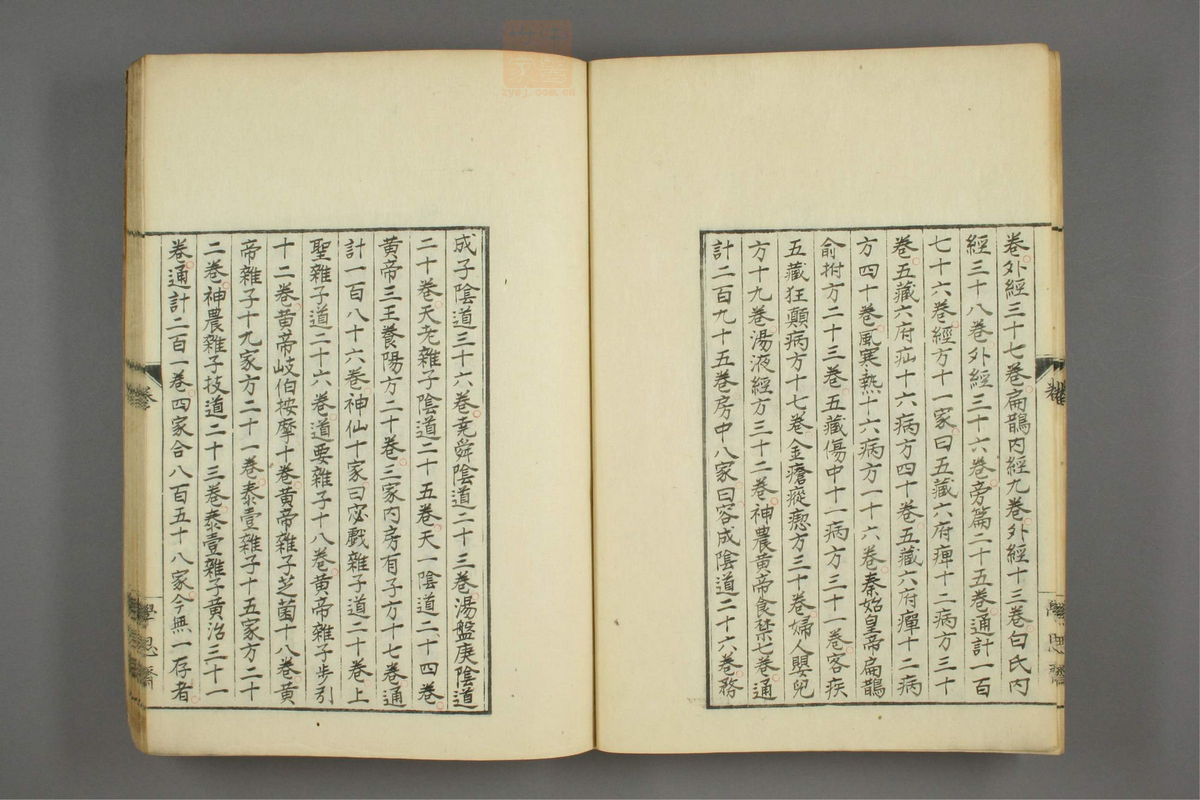 卷外經三十七卷扁鵲內經九卷外經十三卷白氏內
經三十八卷外經三十六卷旁篇二十五卷通計一百
七十六卷經方十一家曰五藏六府痺十二病方三十
卷五藏六府疝十六病方四十卷五藏六府癉十二病
方四十卷風寒熱十六病方一十六卷秦始皇帝扁鵲
俞拊方二十三卷五藏傷中十一病方三十一卷客疾
五藏狂顛病方十七卷金瘡瘲瘛方三十卷婦人嬰兒
方十九卷湯液經方三十二卷神農黃帝食禁七卷通
計二百九十五卷房中八家曰容成陰道二十六卷務
成子陰道三十六卷堯舜陰道二十三卷湯盤庚陰道
二十卷天老雜子陰道二十五卷天一陰道二十四卷
黃帝三王養陽方二十卷三家內房有子方十七卷通
計一百八十六卷神仙十家曰宓戲雜子道二十卷上
聖雜子道二十六卷道要雜子十八卷黃帝雜子步引
十二卷黃帝岐伯按摩十卷黃帝雜子芝菌十八卷黃
帝雜子十九家方二十一卷泰壹雜子十五家方二十
二卷神農雜子技道二十三卷泰壹雜子黃治三十一
卷通計二百一卷四家合八百五十八家今無一存者
學思齋
zysj.com.cn